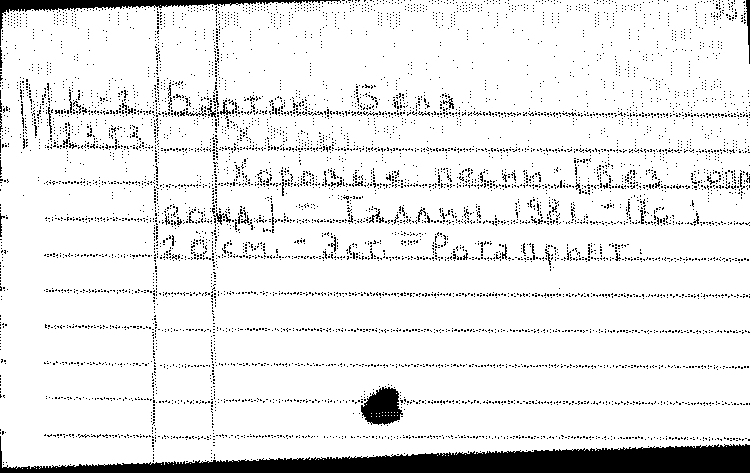 М К-2 Барток, Бела
Хоровые песни: [без сопр
вожд.]. - Таллин, 1981. -
28 см. - Эст. - Ротапринт.